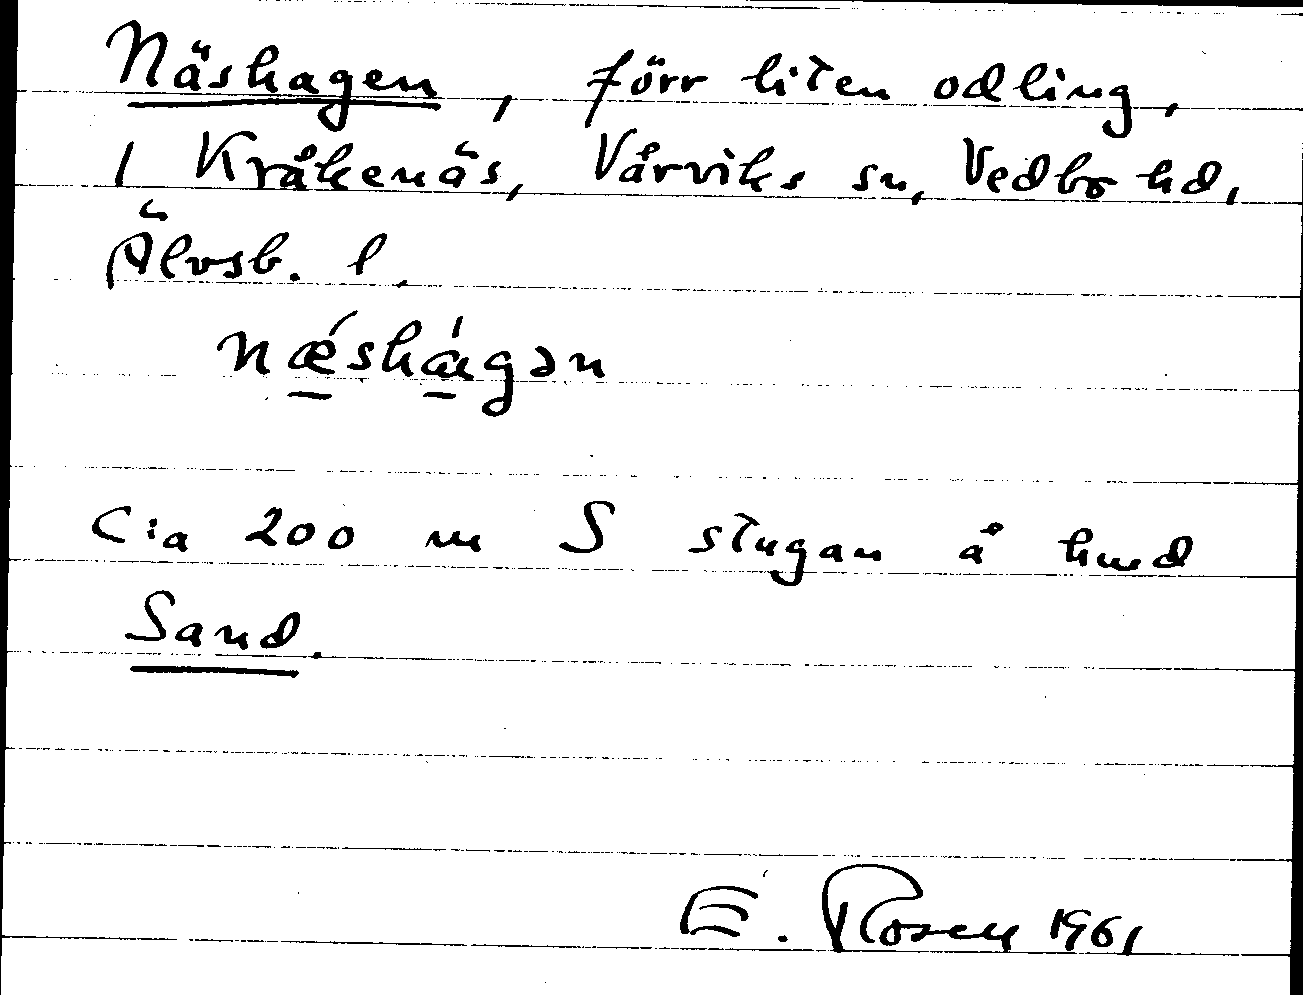 Näshagen, förr liten odling,
1 Kråkenäs, Vårviks sn, Vedbo hd,
Älvsb. l.
nǽ̱shá̱gən
C:a 200 m S stugan å hmd
Sand.
E. Rosen 1961